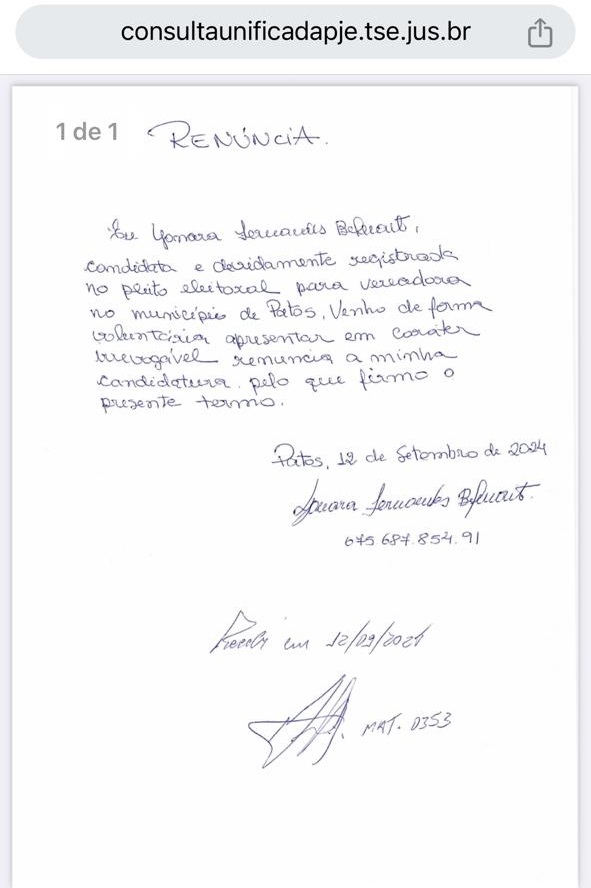 consultaunificadapje.tse.jus.br
1 de 1
RENÚNCIA.
Eu Yomara Fernandes
candidata e devidamente registrada
no pleito eleitoral para vereadora
no município de Patos, Venho de forma
voluntária apresentar em caráter
irrevogável renuncia a minha
candidatura, pelo que firmo o
presente termo.
Patos, 12 de Setembro de 2024
Fernandes
675 687.854.91
Recebi em 12/09/2024
MAT. 0353